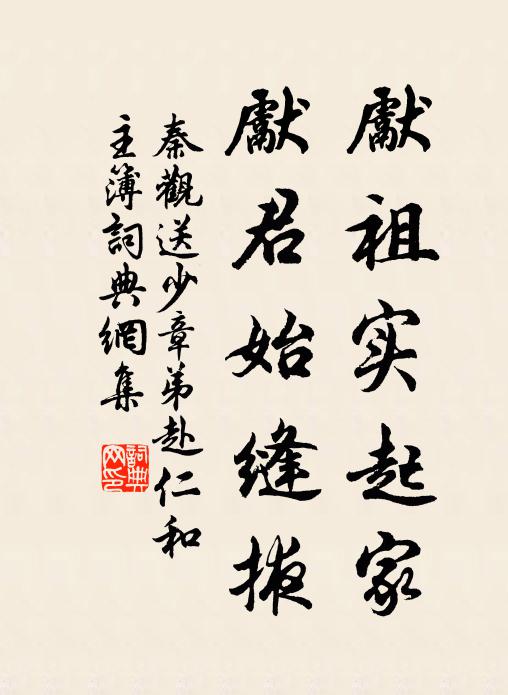 獻祖实起家
獻君始縫掖
秦觀送少章弟赴仁和
主簿詞典網集
詞典网印